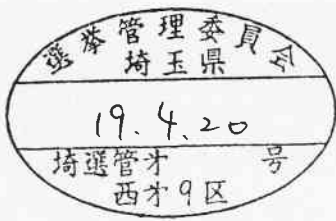 選挙管理委員会
埼玉県
19.4.20
埼選管才 号
西才9区